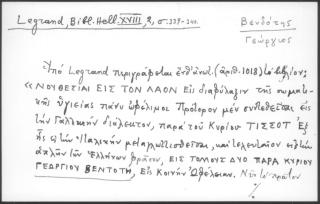 Legrand, Bibl. Hell. XVIII, 2, σ. 339-340.
Βενδότης
Γεώργιος
Ὑπὸ Legrand περιγράφεται (ἀριθ. 1018) τὸ βιβλίον:
«ΝΟΥΘΕΣΙΑΙ ΕΙΣ ΤΟΝ ΛΑΟΝ εἰς διαφύλαξιν τῆς σωματι-
κῆς ὑγιείας πάνυ ὠφέλιμοι. Πρότερον μὲν συντεθεῖσαι εἰς
τὴν Γαλλικὴν διάλεκτον, παρὰ τοῦ Κυρίου ΤΙΣΣΟΤ Ἐξ
ἧς εἰς τὴν Ἰταλικὴν μεταγλωττισθεῖσαι, καὶ τελευταῖον εἰς τὴν
ἁπλῆν τῶν Ἑλλήνων φράσιν, ΕΙΣ ΤΟΜΟΥΣ ΔΥΟ ΠΑΡΑ ΚΥΡΙΟΥ
ΓΕΩΡΓΙΟΥ ΒΕΝΤΟΤΗ, Εἰς Κοινὴν Ὠφέλειαν.